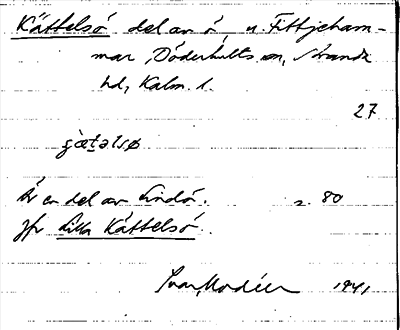 Kättelsö del av ö, u. Fittjeham-
mar, Döderhults sn, Stranda
hd, Kalm. l.
27
Är en del av Lindö. 80
Jfr Lilla Kättelsö.
Ivar Modéer 1941